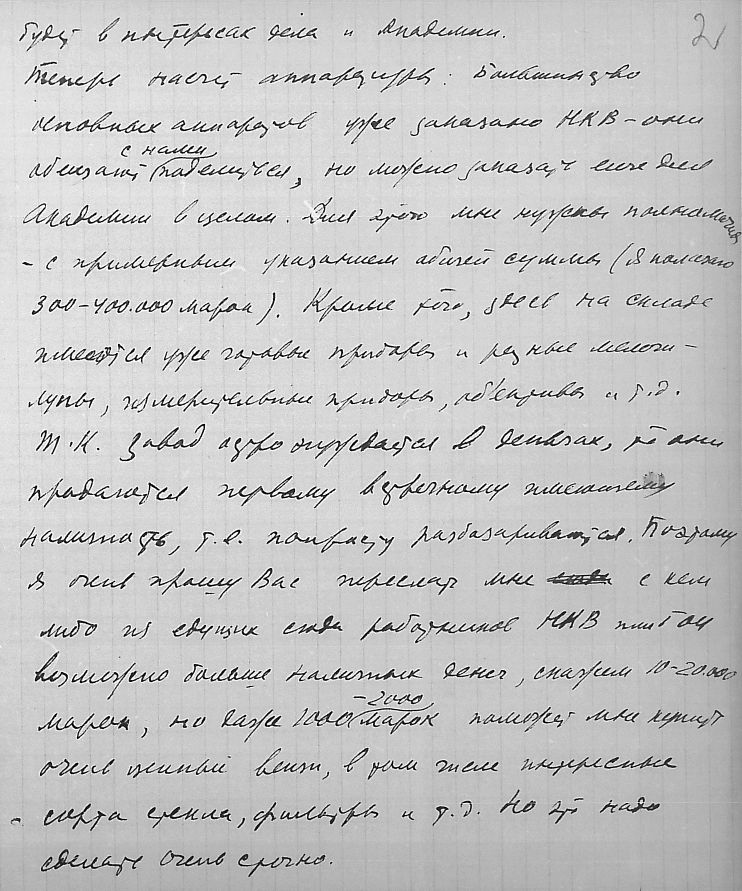 2
будет в интересах дела и Академии.
Теперь насчет аппаратуры: Большинство
основных аппаратов уже заказано НКВ – они
с нами
обещают поделиться, но можно заказать еще для
Академии в целом. Для этого мне нужны полномочия
– с примерным указанием общей суммы (я полагаю
300–400.000 марок). Кроме того, здесь на складе
имеются уже готовые приборы и разные мелочи –
лупы, измерительные приборы, об'ективы и т.д.
Т.К. завод остро нуждается в деньгах, то они
продаются первому встречному имеющему
наличность, т.е. попросту разбазариваются. Поэтому
я очень прошу Вас переслать мне с кем
либо из едущих сюда работников НКВ или ГОИ
возможно больше наличных денег, скажем 10–20.000
–2000
марок, но даже 1000 марок поможет мне купить
очень ценные вещи, в том числе интересные
сорта стекла, фильтры и т.д. Но это надо
сделать очень срочно.